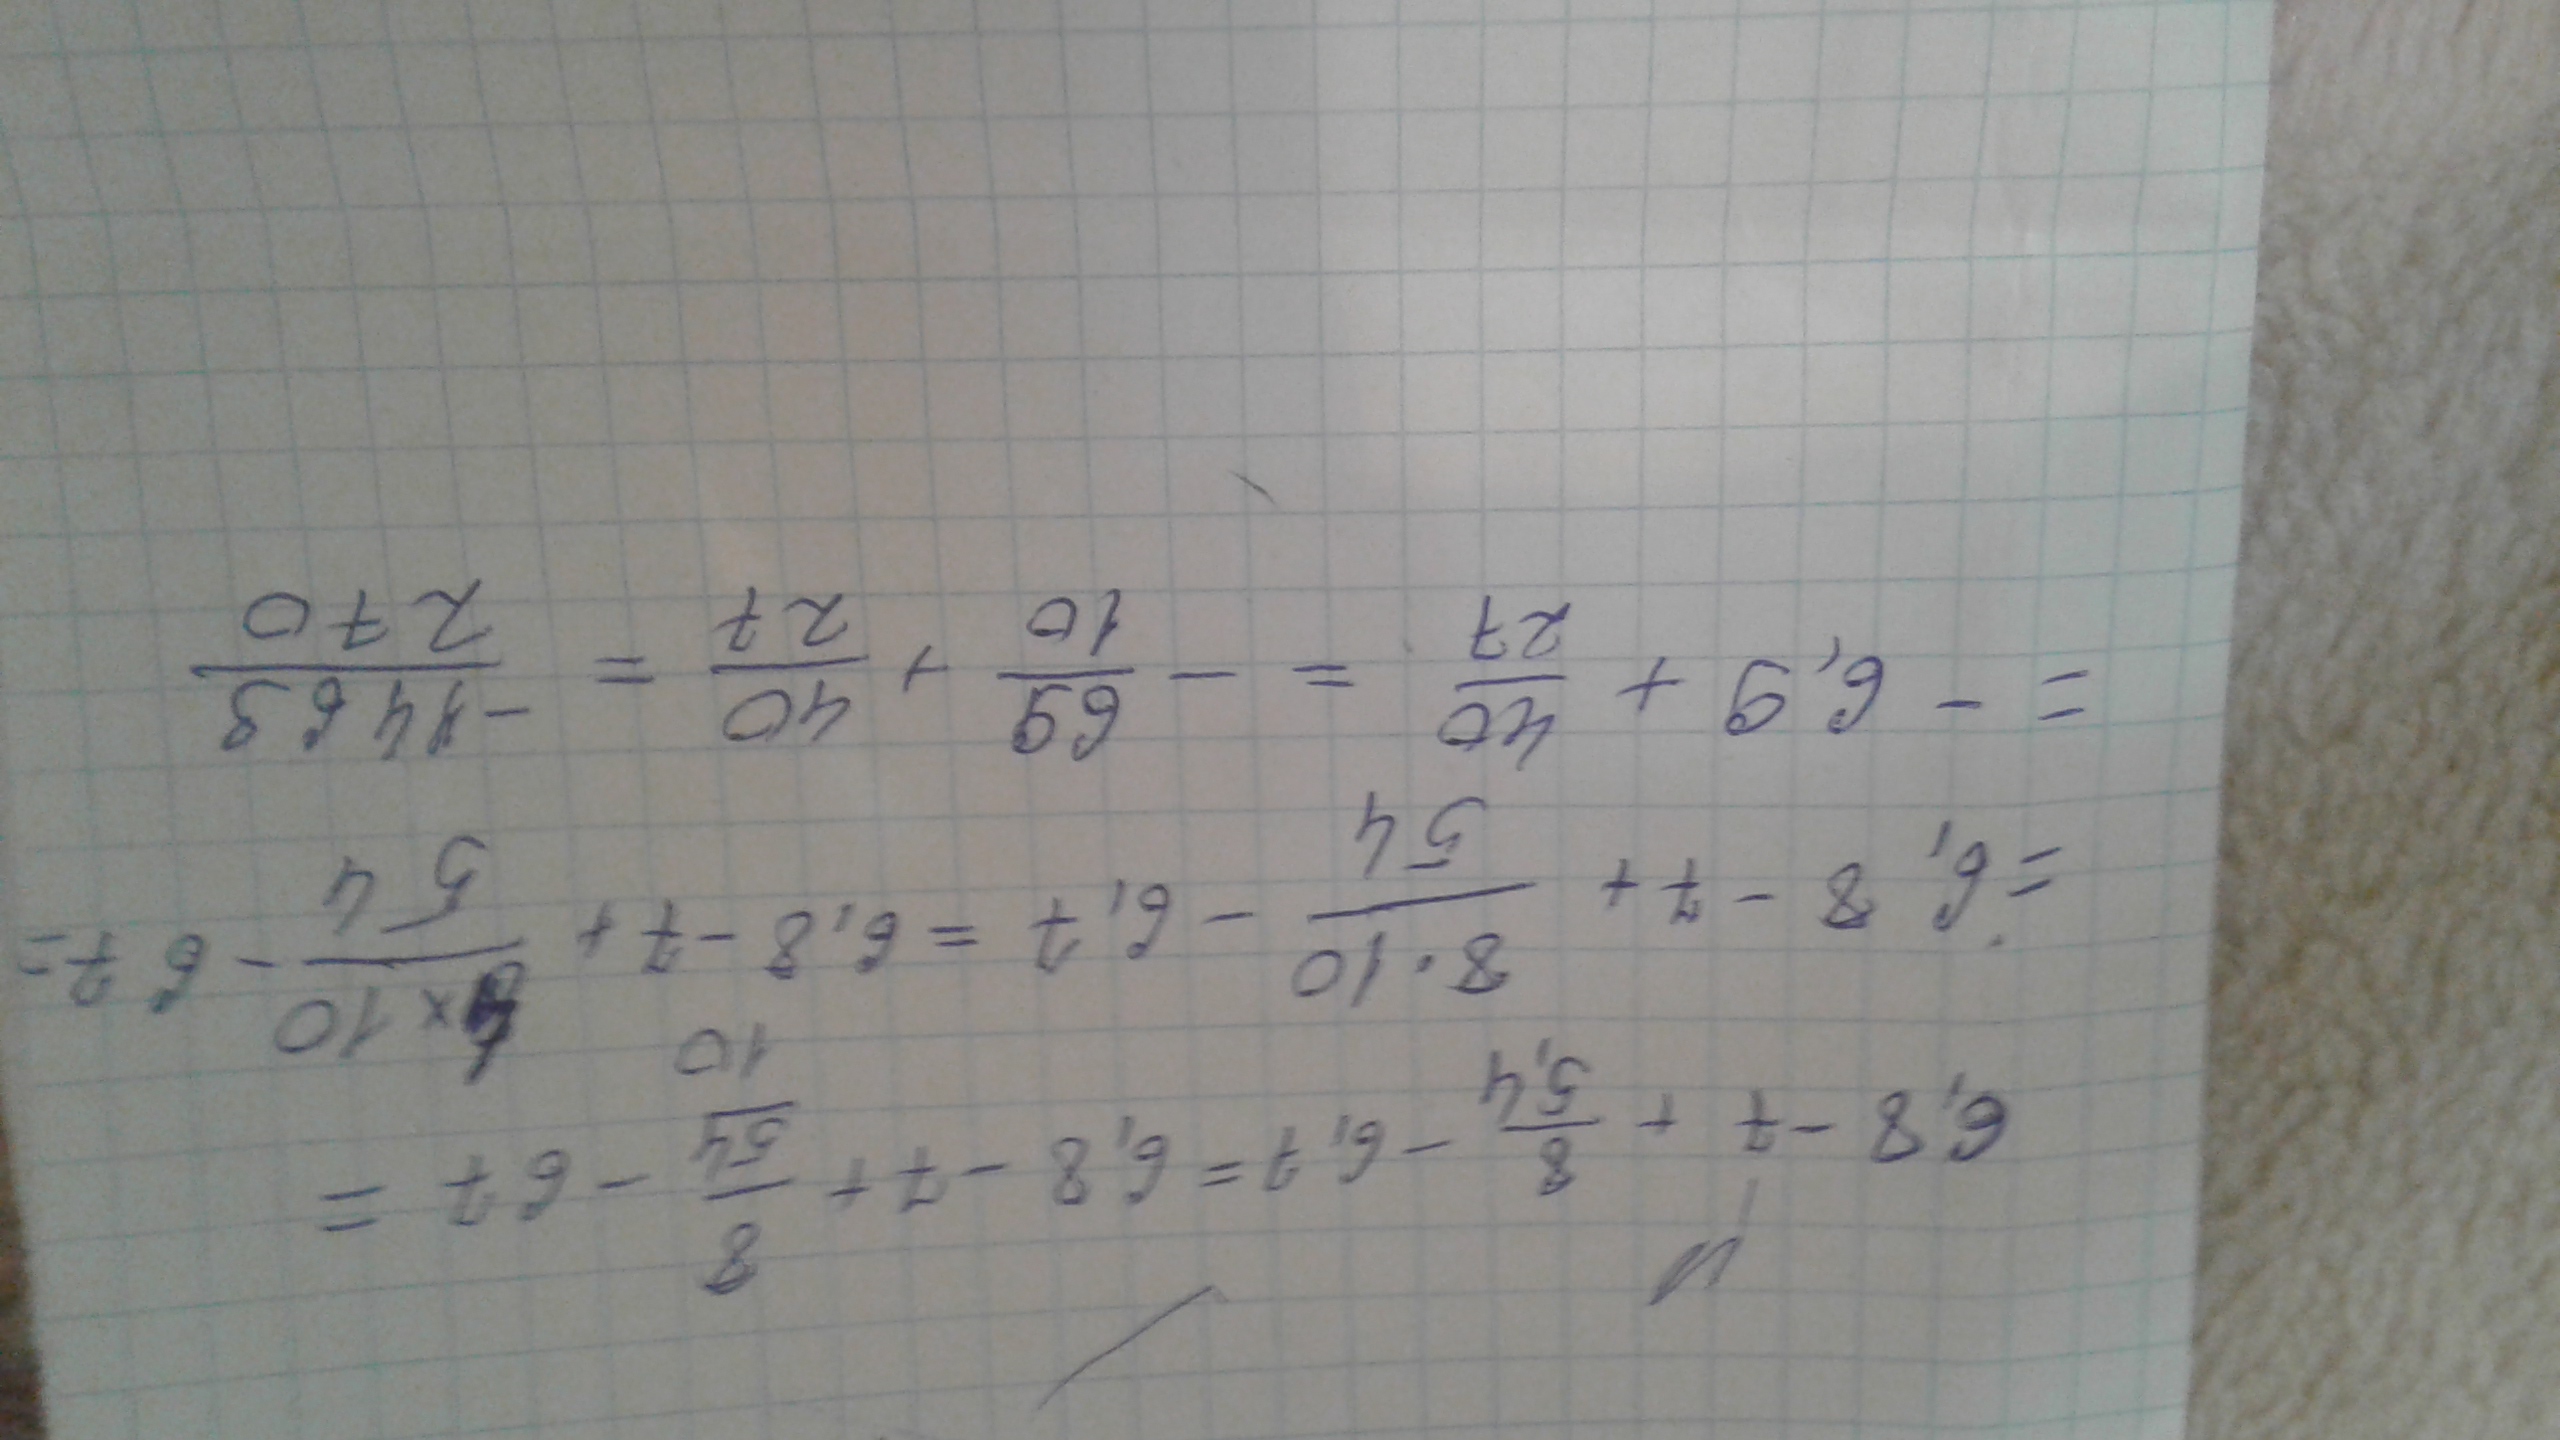 6,8 - 7 + 8/5,4 - 6,7 = 6,8 - 7 + 8/(54/10) - 67 =
= 6,8 - 7 + 8·10/54 - 6,7 = 6,8 - 7 + ×10/54 - 67 =
= - 6,9 + 40/27 = - 69/10 + 40/27 = -1463/270